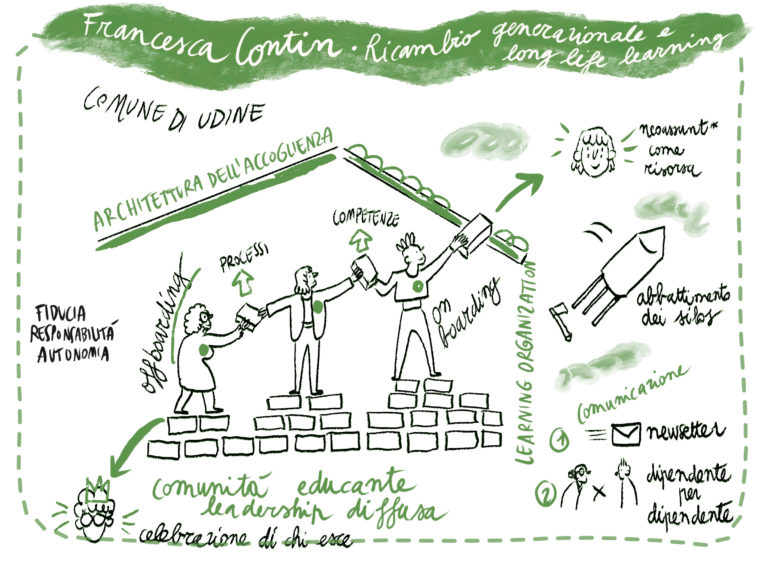 Francesca Contin • Ricambio generazionale e
long life learning
COMUNE DI UDINE
ARCHITETTURA DELL'ACCOGLIENZA
neoassunt*
come
risorsa
COMPETENZE
PROCESSI
offboarding
on
boarding
LEARNING ORGANIZATION
FIDUCIA
RESPONSABILITÁ
AUTONOMIA
abbattimento
dei silos
comunicazione
1 newsetter
2 x dipendente
per
dipendente
comunitá educante
leadership diffusa
celebrazione di chi esce